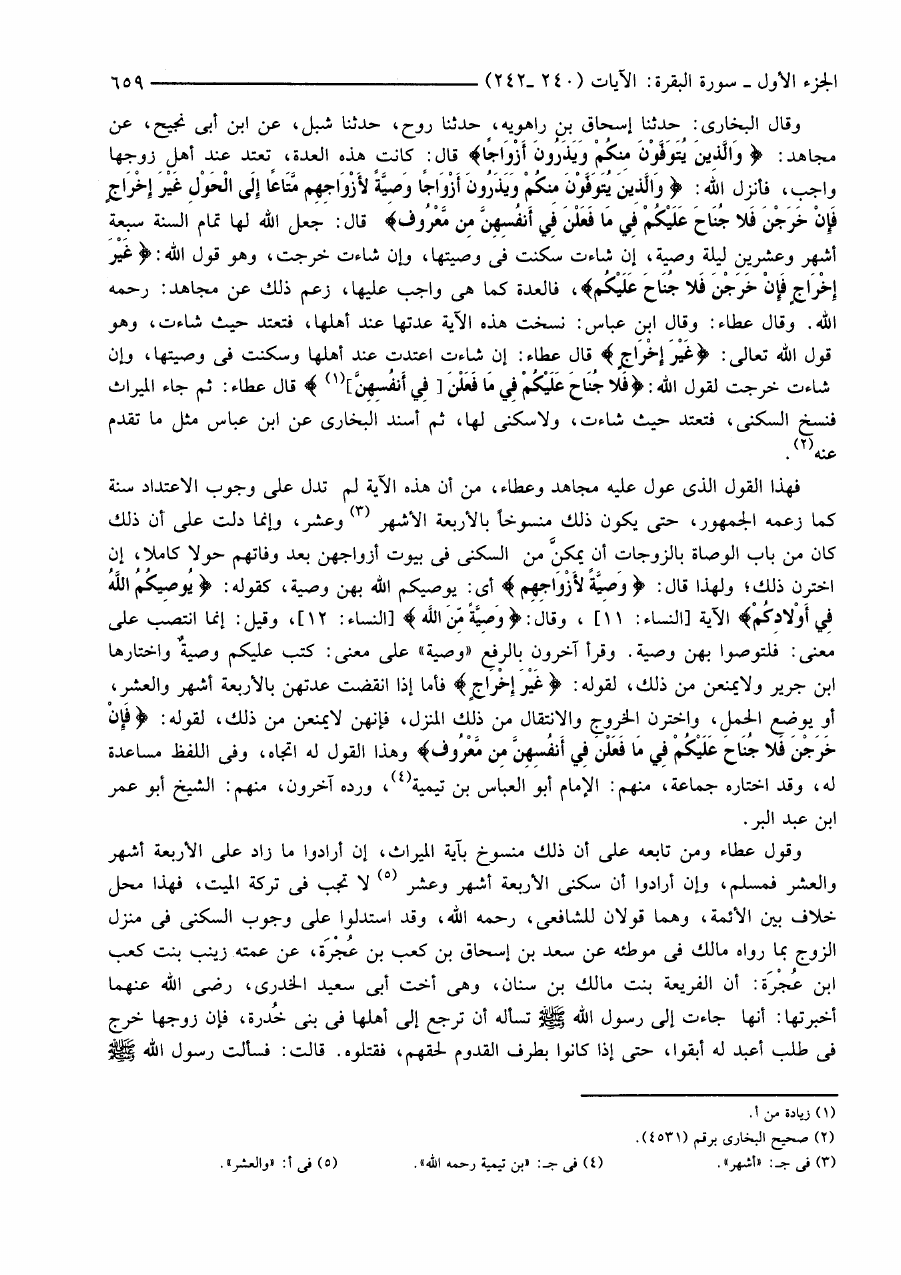 الجزء الأول ـ سورة البقرة: الآيات (٢٤٠ ـ٢٤٢) ٦٥٩
وقال البخارى: حدثنا إسحاق بن راهويه، حدثنا روح، حدثنا شبل، عن ابن أبى نجيح، عن
مجاهد: ﴿ وَالَّذِينَ يُتَوَفَّوْنَ مِنكُمْ وَيَذَرُونَ أَزْوَاجًا﴾ قال: كانت هذه العدة، تعتد عند أهل زوجها
واجب، فأنزل الله: ﴿ وَالَّذِينَ يُتَوَفَّوْنَ مِنكُمْ وَيَذَرُونَ أَزْوَاجًا وَصِيَّةً لأَزْوَاجِهِم مَّتَاعًا إِلَى الْحَوْلِ غَيْرَ إِخْرَاجٍ
فَإِنْ خَرَجْنَ فَلا جُنَاحَ عَلَيْكُمْ فِي مَا فَعَلْنَ فِي أَنفُسِهِنَّ مِن مَّعْرُوف﴾ قال: جعل الله لها تمام السنة سبعة
أشهر وعشرين ليلة وصية، إن شاءت سكنت فى وصيتها، وإن شاءت خرجت، وهو قول الله:﴿ غَيْرَ
إِخْرَاجٍ فَإِنْ خَرَجْنَ فَلا جُنَاحَ عَلَيْكُم﴾، فالعدة كما هى واجب عليها، زعم ذلك عن مجاهد: رحمه
الله. وقال عطاء: وقال ابن عباس: نسخت هذه الآية عدتها عند أهلها، فتعتد حيث شاءت، وهو
قول الله تعالى: ﴿غَيْرَ إِخْرَاجٍ ﴾ قال عطاء: إن شاءت اعتدت عند أهلها وسكنت فى وصيتها، وإن
شاءت خرجت لقول الله:﴿فَلا جُنَاحَ عَلَيْكُمْ فِي مَا فَعَلْنَ [ فِي أَنفُسِهِنَّ ](١) ﴾ قال عطاء: ثم جاء الميراث
فنسخ السكنى، فتعتد حيث شاءت، ولاسكنى لها، ثم أسند البخارى عن ابن عباس مثل ما تقدم
عنه(٢).
فهذا القول الذى عول عليه مجاهد وعطاء، من أن هذه الآية لم تدل على وجوب الاعتداد سنة
كما زعمه الجمهور، حتى يكون ذلك منسوخاً بالأربعة الأشهر (٣) وعشر، وإنما دلت على أن ذلك
كان من باب الوصاة بالزوجات أن يمكنَّ من السكنى فى بيوت أزواجهن بعد وفاتهم حولا كاملا، إن
اخترن ذلك؛ ولهذا قال: ﴿ وَصِيَّةً لأَزْوَاجِهِم ﴾ أى: يوصيكم الله بهن وصية، كقوله: ﴿ يُوصِيكُمُ اللَّهُ
فِي أَوْلادِكُمْ﴾ الآية [النساء: ١١] ، وقال:﴿ وَصِيَّةً مِّنَ اللَّه ﴾ [النساء: ١٢]، وقيل: إنما انتصب على
معنى: فلتوصوا بهن وصية. وقرأ آخرون بالرفع «وصية» على معنى: كتب عليكم وصيةٌ واختارها
ابن جرير ولايمنعن من ذلك، لقوله: ﴿ غَيْرَ إِخْرَاجٍ ﴾ فأما إذا انقضت عدتهن بالأربعة أشهر والعشر،
أو بوضع الحمل، واخترن الخروج والانتقال من ذلك المنزل، فإنهن لايمنعن من ذلك، لقوله: ﴿ فَإِنْ
خَرَجْنَ فَلا جُنَاحَ عَلَيْكُمْ فِي مَا فَعَلْنَ فِي أَنفُسِهِنَّ مِن مَّعْرُوف﴾ وهذا القول له اتجاه، وفى اللفظ مساعدة
له، وقد اختاره جماعة، منهم: الإمام أبو العباس بن تيمية(٤)، ورده آخرون، منهم: الشيخ أبو عمر
ابن عبد البر.
وقول عطاء ومن تابعه على أن ذلك منسوخ بآية الميراث، إن أرادوا ما زاد على الأربعة أشهر
والعشر فمسلم، وإن أرادوا أن سكنى الأربعة أشهر وعشر (٥) لا تجب فى تركة الميت، فهذا محل
خلاف بين الأئمة، وهما قولان للشافعى، رحمه الله، وقد استدلوا على وجوب السكنى فى منزل
الزوج بما رواه مالك فى موطئه عن سعد بن إسحاق بن كعب بن عُجْرَة، عن عمته زينب بنت كعب
ابن عُجْرَة: أن الفريعة بنت مالك بن سنان، وهى أخت أبى سعيد الخدرى، رضى الله عنهما
أخبرتها: أنها جاءت إلى رسول الله ﷺ تسأله أن ترجع إلى أهلها فى بنى خُدرة، فإن زوجها خرج
فى طلب أعبد له أبقوا، حتى إذا كانوا بطرف القدوم لحقهم، فقتلوه. قالت: فسألت رسول الله ﷺ
(١) زيادة من أ.
(٢) صحيح البخارى برقم (٤٥٣١).
(٣) فى جـ: «أشهر». (٤) فى جـ: «بن تيمية رحمه الله». (٥) فى أ: «والعشر».